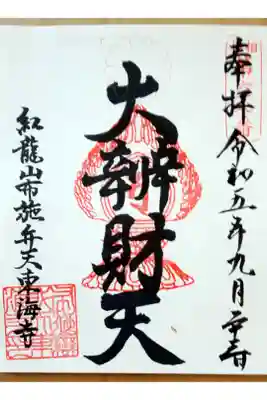 奉拝 令和五年九月二十三日
大辨財天
紅龍山布施弁天東海寺